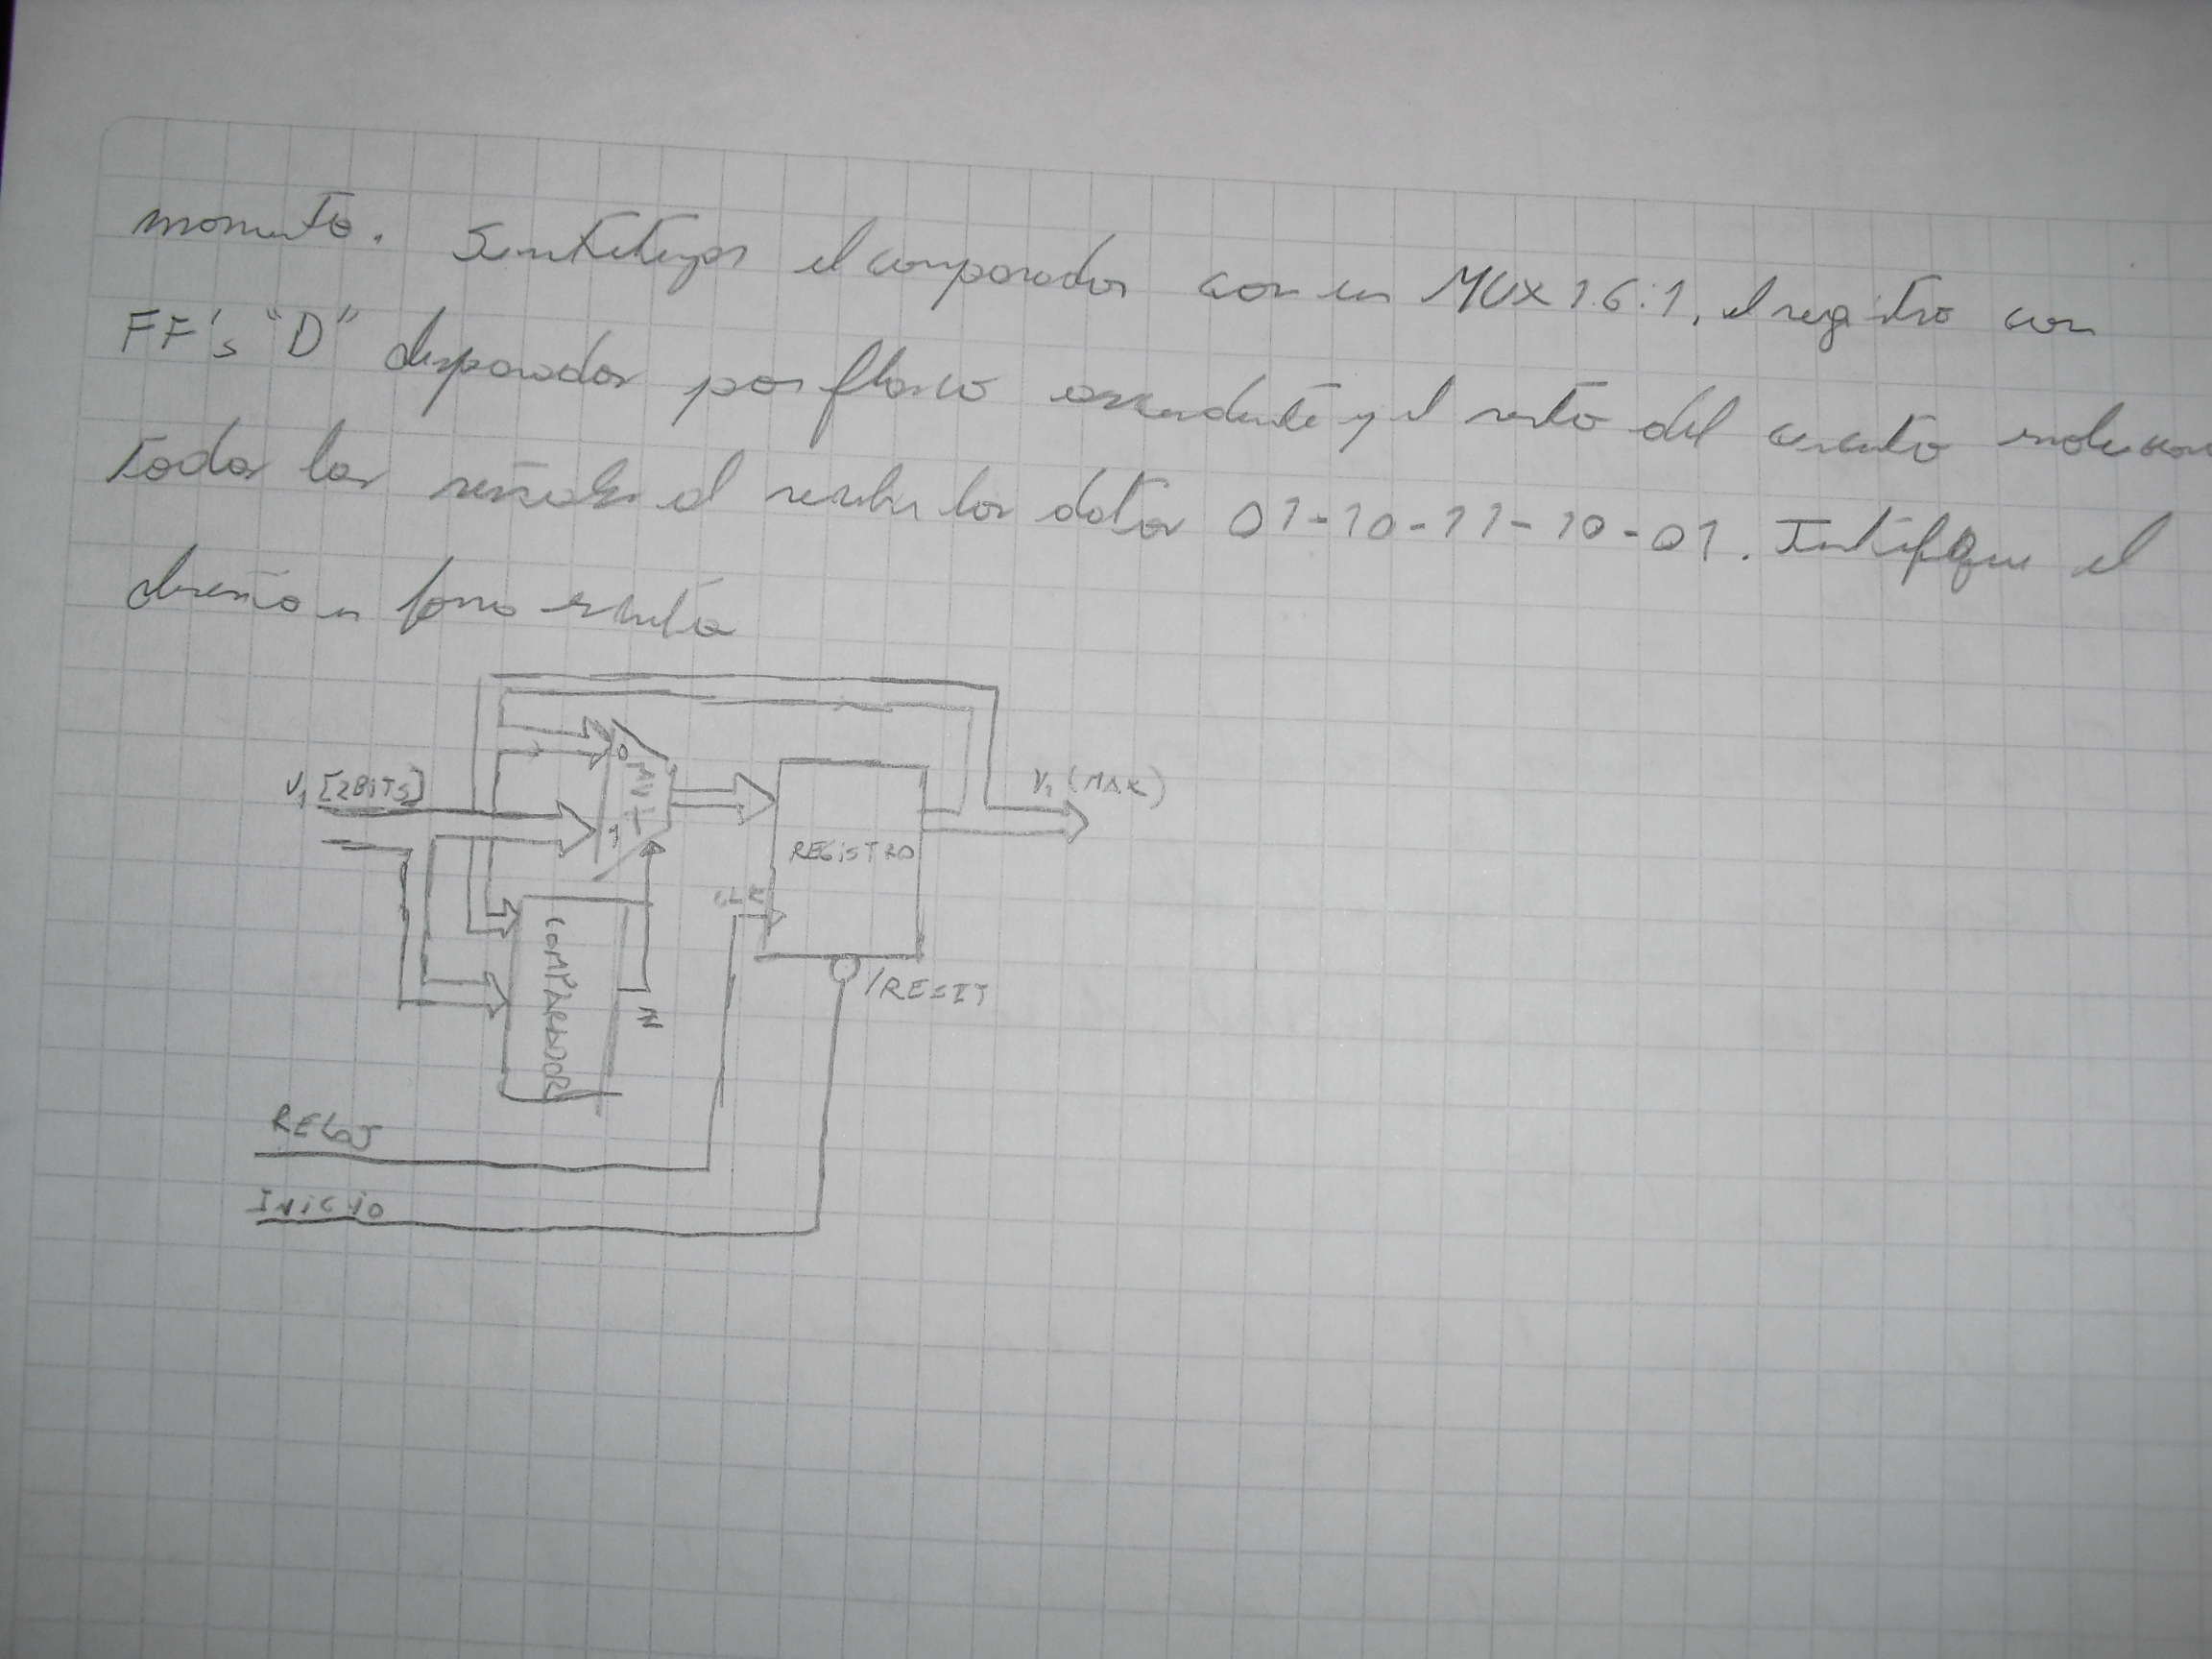 momento. Sintetizar el comparador con un MUX 16:1, el registro con
FF's "D" disparador por flanco ascendente y el resto del circuito
todas las señales al recibir los datos 01-10-11-10-01. Justifique el
diseño en forma escrita
V1 [2BITS]
0
MUX
1
V1 (MAX)
REGISTRO
CLK
COMPARADOR
/RESET
RELOJ
INICIO